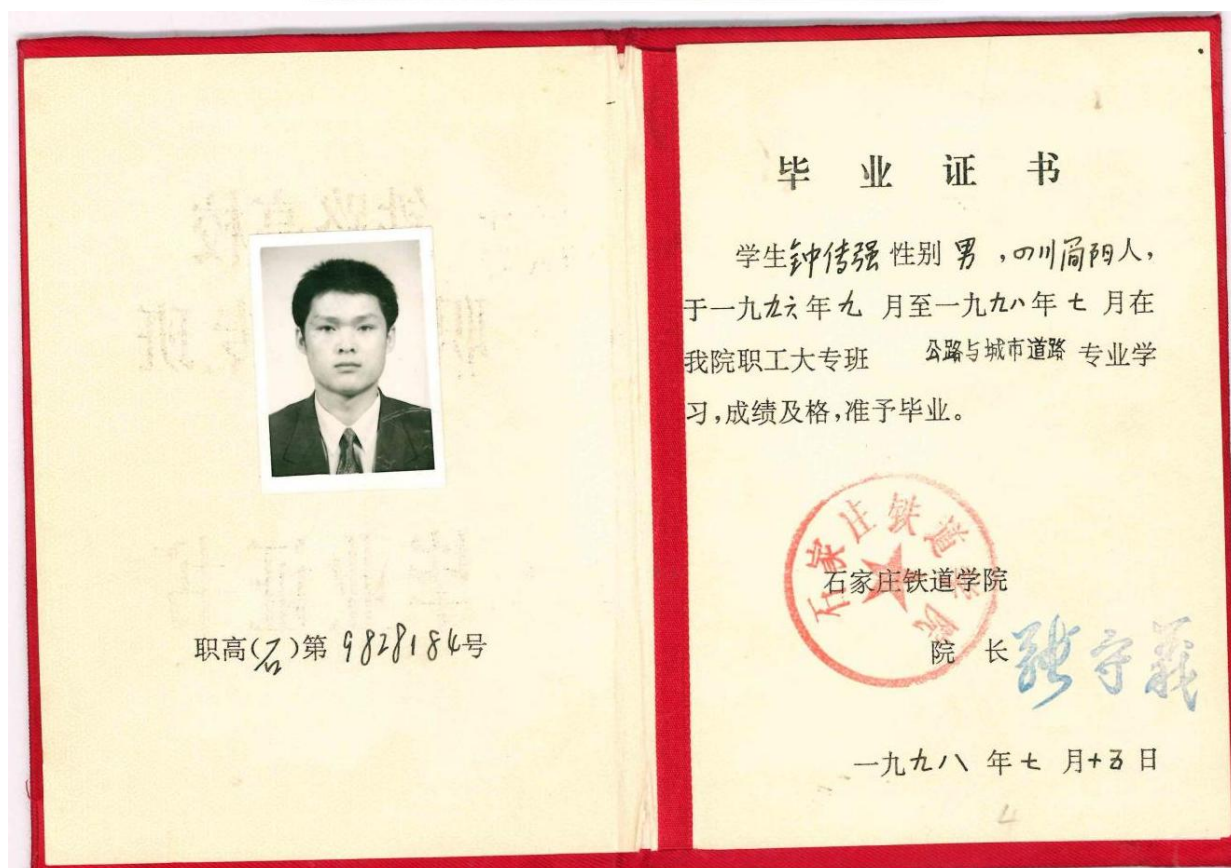 职高(石)第 9828184号
毕业证书
学生钟传强性别男,四川简阳人,
于一九九六年九月至一九九八年七月在
我院职工大专班 公路与城市道路 专业学
习,成绩及格,准予毕业。
石家庄铁道学院
石家庄铁道学院
院长 张守義
一九九八年七月十五日
4